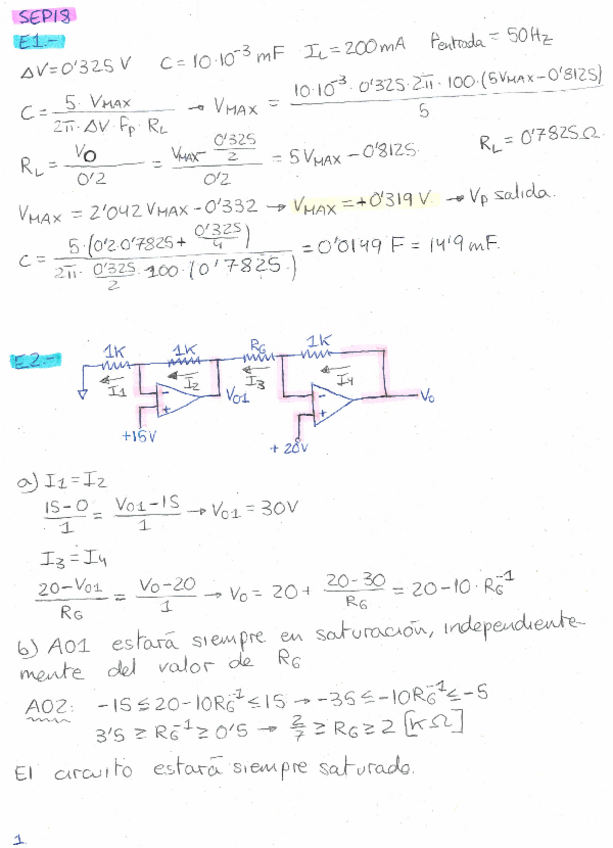 SEP18
E1.-
ΔV=0'325 V C=10·10⁻³ mF I_L=200mA fentrada=50Hz
C = 5·VMAX / 2π·ΔV·fp·RL → VMAX = 10·10⁻³·0'325·2π·100·(5VMAX-0'8125) / 5
RL = VO / 0'2 = VMAX - 0'325/2 / 0'2 = 5VMAX-0'8125. RL=0'7825Ω.
VMAX = 2'042VMAX-0'332 → VMAX=+0'319 V. → Vp salida.
C = 5·(0'2·0'7825+ 0'325/4) / 2π· 0'325/2 ·100·(0'7825) = 0'0149 F = 14'9 mF.
E2.-
1K 1K RG 1K
I1 I2 I3 I4
- + VO1 - + VO
+15V + 20V
a) I1=I2
15-0 / 1 = VO1-15 / 1 → VO1=30V
I3=I4
20-VO1 / RG = VO-20 / 1 → VO=20+ 20-30 / RG = 20-10·RG⁻¹
b) AO1 estará siempre en saturación, independiente-
mente del valor de RG
AO2: -15≤20-10RG⁻¹≤15 → -35≤-10RG⁻¹≤-5
3'5≥RG⁻¹≥0'5 → 2/7 ≥RG≥2 [KΩ]
El circuito estará siempre saturado.
1